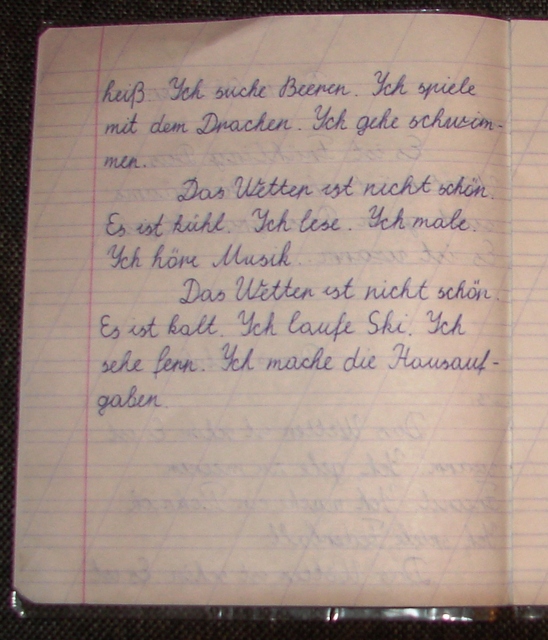 heiß. Ich suche Beeren. Ich spiele
mit dem Drachen. Ich gehe schwim-
men.
Das Wetter ist nicht schön.
Es ist kühl. Ich lese. Ich male.
Ich höre Musik.
Das Wetter ist nicht schön.
Es ist kalt. Ich laufe Ski. Ich
sehe fern. Ich mache die Hausauf-
gaben.